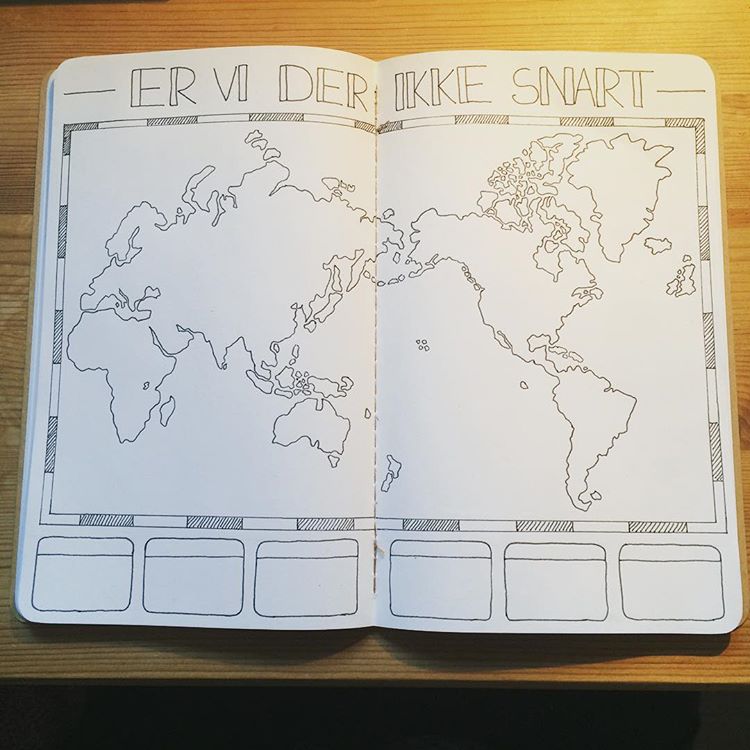 ER VI DER IKKE SNART